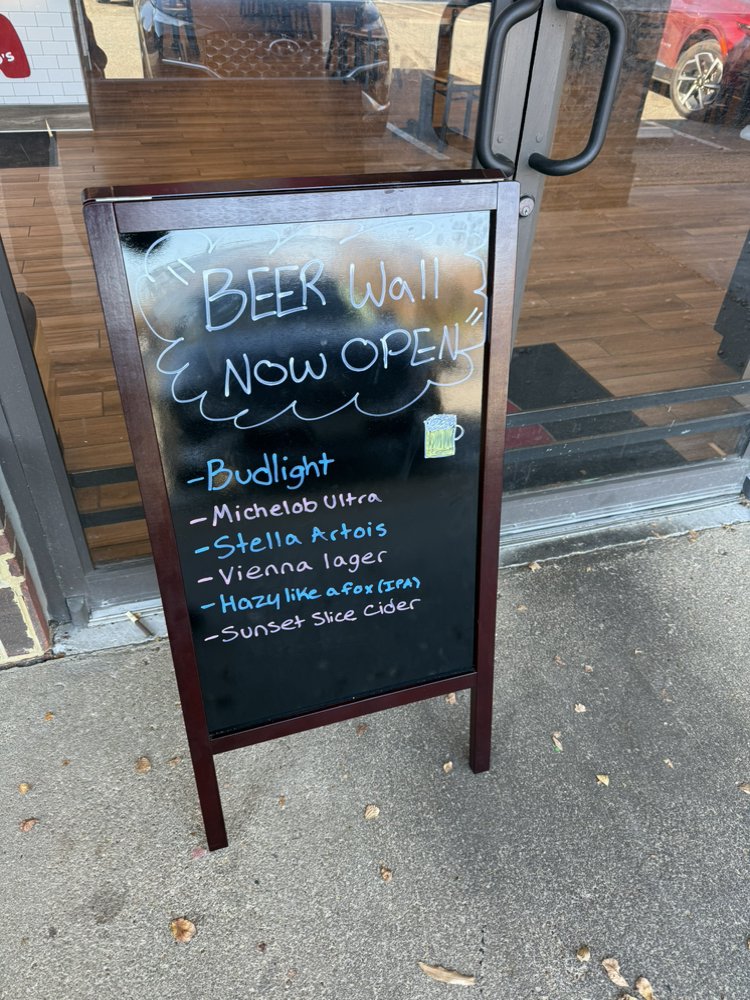 "BEER Wall
NOW OPEN"
-Budlight
-Michelob Ultra
-Stella Artois
-Vienna lager
-Hazy like a fox (IPA)
-Sunset Slice Cider